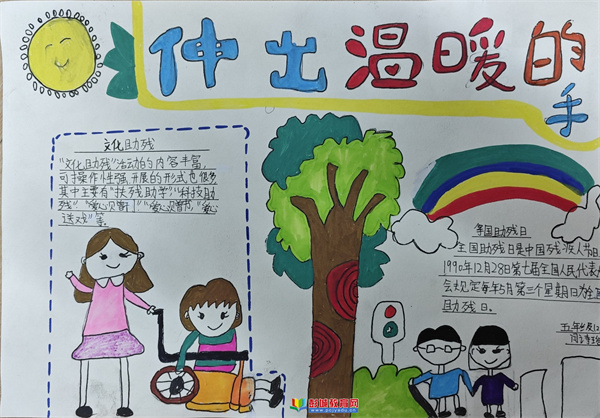 伸出温暖的手
文化助残
"文化助残"活动的内容丰富,
可操作性强,开展的形式也很多
其中主要有"扶残助学""科技助
残""爱心
送戏"等
全国助残日
全国助残日是中国残疾人节日
1990年12月28日第七届全国人民代表
会规定每年5月第三个星期日为全国
助残日。
彭璟教育网
www.pcjyedu.cn